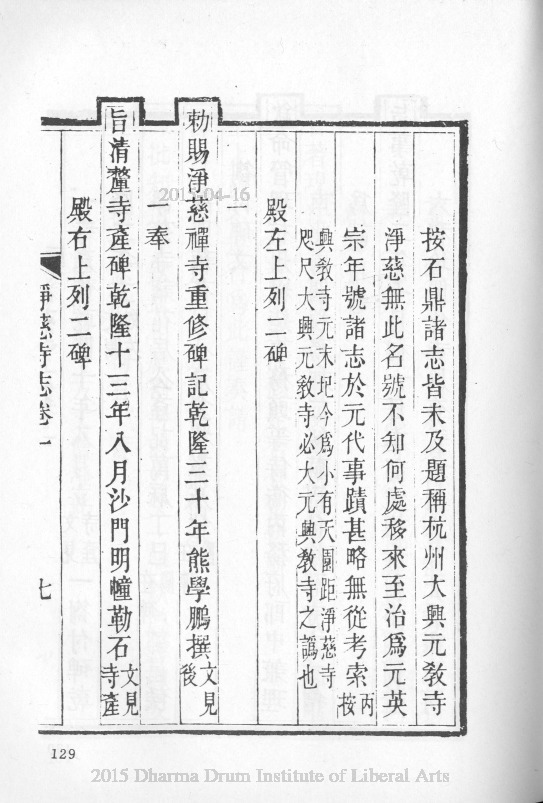 按石鼎諸志皆未及題稱杭州大興元敎寺
淨慈無此名號不知何處移來至治爲元英
宗年號諸志於元代事蹟甚略無從考索丙按
興敎寺元末圯今爲小有天園距淨慈寺
咫尺大興元敎寺必大元興敎寺之譌也
殿左上列二碑
一
勅賜淨慈禪寺重修碑記乾隆三十年熊學鵬撰文見後
一奉
旨清釐寺產碑乾隆十三年八月沙門明幢勒石文見寺產
殿右上列二碑
淨慈寺志卷一
七
129
2015-04-16
2015 Dharma Drum Institute of Liberal Arts